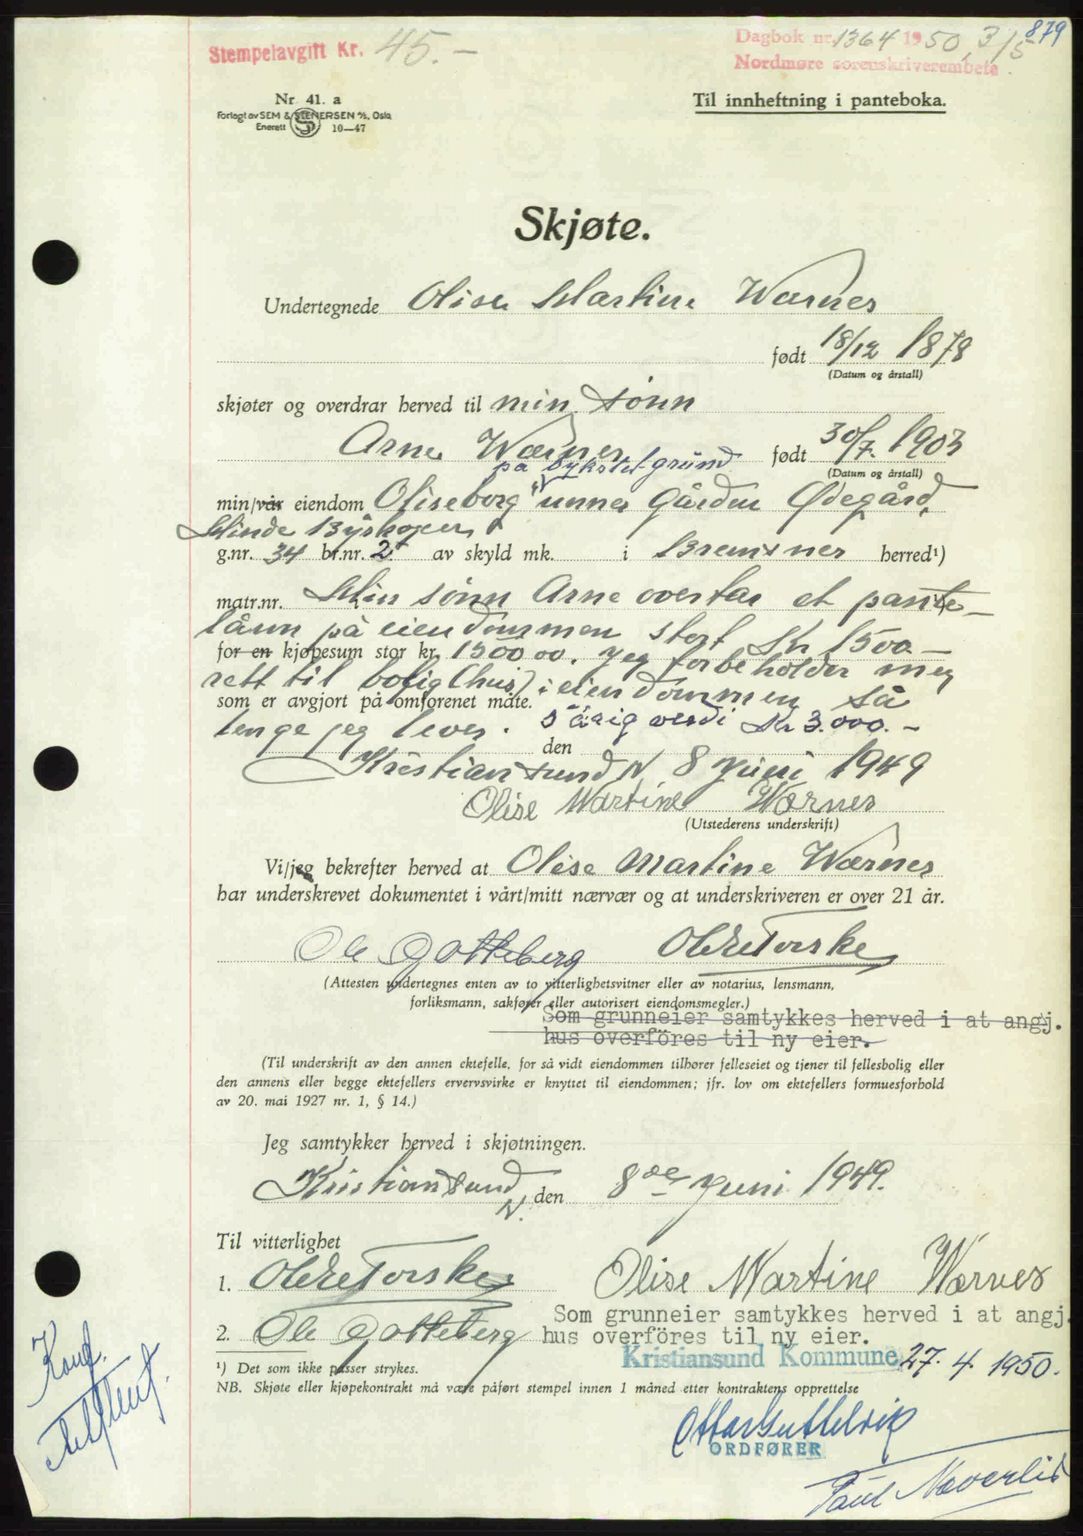 879
Stempelavgift Kr. 45.-
Dagbok nr. 1364 1950, 3/5
Nordmøre sorenskriverembete.
Nr. 41. a
Forlagt av SEM & STENERSEN A/S, Oslo
Enerett S 10—47
Til innheftning i panteboka.
Skjøte.
Undertegnede Olise Martine Wærnes
født 18/12 1878
(Datum og årstall)
skjøter og overdrar herved til min sønn
Arne Wærnes født 30/7. 1903
(Datum og årstall)
på bykstel.grund
min/vår eiendom Oliseborg" unner Gården Ødegård,
g.nr. 34 br.nr. 2 av skyld mk. i Bremsner herred¹)
matr.nr. Min sønn Arne overtar et pante-
låun på eiendommen stort Kr 1500 –
for en kjøpesum stor kr. 1500.00. Jeg forbeholder meg
rett til bolig (hus) i eiendommen så
som er avgjort på omforenet måte.
lenge jeg lever. 5 årig verdi Kr 3.000.-
den
Kristiansund N 8 Juni 1949
Olise Martine Wærnes
(Utstederens underskrift)
Vi/jeg bekrefter herved at Olise Martine Wærnes
har underskrevet dokumentet i vårt/mitt nærvær og at underskriveren er over 21 år.
(Attesten undertegnes enten av to vitterlighetsvitner eller av notarius, lensmann,
forliksmann, sakfører eller autorisert eiendomsmegler.)
Som grunneier samtykkes herved i at angj.
hus overföres til ny eier.
(Til underskrift av den annen ektefelle, for så vidt eiendommen tilhører felleseiet og tjener til fellesbolig eller
den annens eller begge ektefellers ervervsvirke er knyttet til eiendommen; jfr. lov om ektefellers formuesforhold
av 20. mai 1927 nr. 1, § 14.)
Jeg samtykker herved i skjøtningen.
Kristiansund N. den 8de Juni 1949.
Til vitterlighet
1.
Olise Martine Wærnes
Som grunneier samtykkes herved i at angj.
2. hus overföres til ny eier.
Kristiansund Kommune, 27.4.1950.
¹) Det som ikke passer strykes.
NB. Skjøte eller kjøpekontrakt må være påført stempel innen 1 måned etter kontraktens opprettelse
ORDFØRER
Konf.